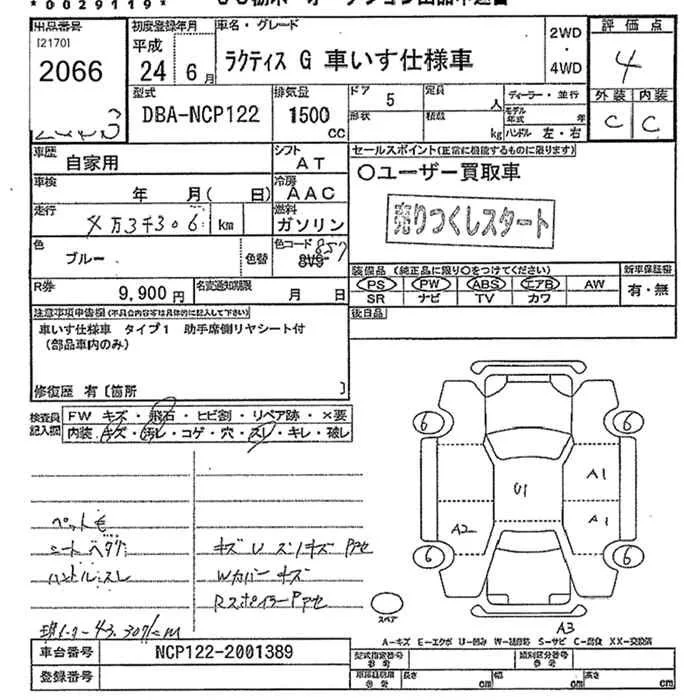 *0029119*
出品番号
[2170]
2066
初度登録年月
平成
24年 6月
車名・グレード
ラクティス G 車いす仕様車
2WD
・
4WD
評価点
4
外装 内装
C C
型式
DBA-NCP122
排気量
1500
cc
ドア 5
形状
定員 人
積載 kg
ディーラー・並行
モデル年式 年
ハンドル 左・右
車歴
自家用
シフト
AT
車検
年 月( 日)
冷房
AAC
走行
4万3千306 km
燃料
ガソリン
色
ブルー
色替
色コード
857
8V9
R券
9,900 円
名変通知期限
月 日
セールスポイント(正常に機能するものに限ります)
○ユーザー買取車
売りつくしスタート
装備品 (純正品に限り○をつけてください)
PS PW ABS エアB AW
SR ナビ TV カワ
新車保証書
有・無
後日品
注意事項申告欄(不具合内容等は具体的に記入して下さい)
車いす仕様車 タイプ1 助手席側リヤシート付
(部品車内のみ)
修復歴 有〔箇所 〕
検査員記入欄
FW キズ・飛石・ヒビ割・リペア跡・×要
内装・キズ・汚レ・コゲ・穴・スレ・キレ・破レ
ペット毛
シートヘタリ
ハンドルスレ
キズ U スリキズ
Wカバー キズ
Rスポイラー
43,307km
6 6
U1
A1
A2
A1
6 6
スペア
A3
A-キズ E-エクボ U-凹み W-補修跡 S-サビ C-腐食 XX-交換済
車台番号
NCP122-2001389
登録番号
型式指定番号
参考
類別区分番号
参考
車両諸範囲
参考
長さ cm
幅 cm
高さ cm